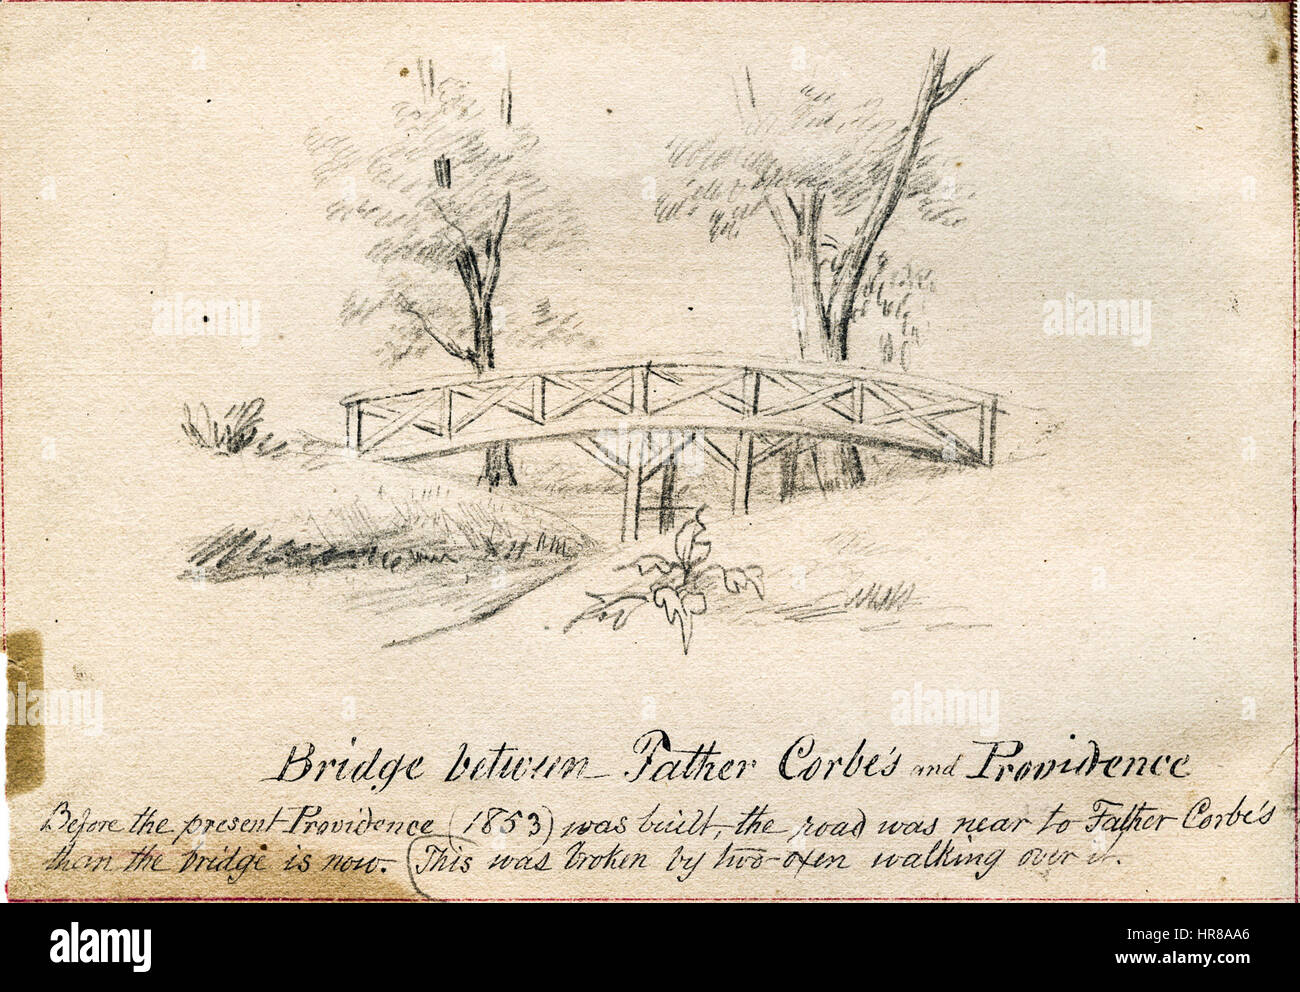 Bridge between Father Corbe's and Providence
Before the present Providence (1853) was built, the road was near to Father Corbe's
than the bridge is now. (This was broken by two oxen walking over it.
alamy
alamy stock photo
HR8AA6
www.alamy.com